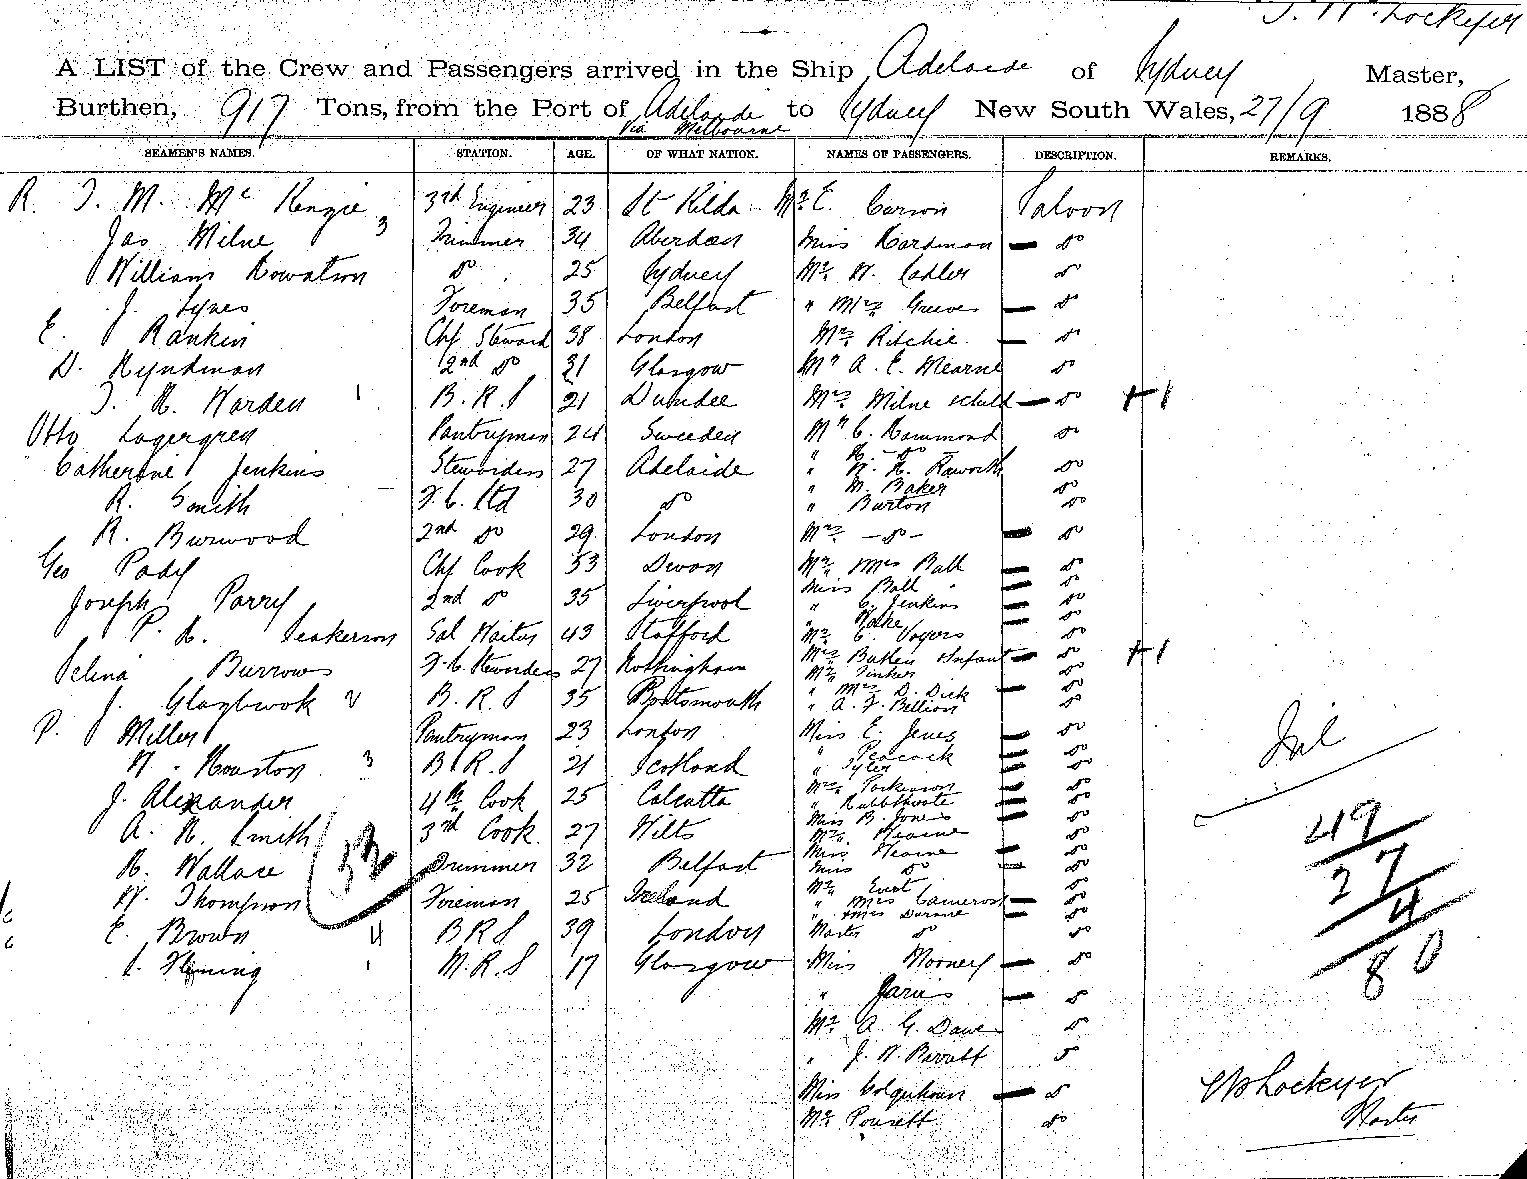 T. W. Lockyer
A LIST of the Crew and Passengers arrived in the Ship Adelaide of Sydney Master,
Burthen, 917 Tons, from the Port of Adelaide to Sydney New South Wales, 27/9 1888
Via Melbourne
SEAMEN'S NAMES. STATION. AGE. OF WHAT NATION. NAMES OF PASSENGERS. DESCRIPTION. REMARKS.
R. J. M. Mc Kenzie 3 3rd Engineer 23 St Kilda Mr E. Carson Saloon
Jas Milne Trimmer 34 Aberdeen Miss Hardman — do
William Rowatson do 25 Sydney Mr W. Cadler do
J. Lynes Foreman 35 Belfast " Mrs Greeves — do
E. Rankin Chf Steward 38 London Mrs Ritchie — do
D. Hyndman 2nd do 31 Glasgow Mr A. E. Hearne do
J. R. Warden 1 B.R.S 21 Dundee Mrs Milne & child — do +1
Otto Lagergren Pantryman 24 Sweeden Mr C. Hammond do
" H. - do -
Catherine Jenkins Stewardess 27 Adelaide " W. H. Haworth do
" M. Baker do
R. Smith F.C. Std 30 do " Burton do
R. Burwood 2nd do 29 London Mrs - do - — do
Geo Pady Chf Cook 53 Devon Mr & Mrs Ball — do
Miss Ball — do
Joseph Parry 2nd do 35 Liverpool " C. Jenkins — do
" Wake — do
P. H. Seakerson Sal Waiter 43 Stafford Mr C. Vogers do
Selina Burrows F.C. Stewardess 27 Nottingham Mrs Butler & Infant — do +1
Mr Tinker do
J. Glazbrook 2 B.R.S 35 Portsmouth " Mrs D. Dick — do
" A. F. Billion do
P. Miller Pantryman 23 London Miss E. Jones — do
" Peacock — do
W. Houston 3 B.R.S 21 Scotland " Tyler — do
J. Alexander 4th Cook 25 Calcutta Mrs Parkinson — do
" — do
A. H. Smith 3rd Cook 27 Wilts Miss B. Jones — do
Mr Hearne do
Miss Hearne — do
R. Wallace Trimmer 32 Belfast Miss do — do
Mr Ewart do
W. Thompson Foreman 25 Ireland " Mrs Cameron — do
" Mrs Durane — do
E. Brown 4 B R S 39 London Master do do
J. Fleming 1 M.R.S 17 Glasgow Miss Mooney — do
" Jarvis — do
Mr A. G. Dawe do
" J. W. Barratt do
Miss Colquhoun — do
Mr Pousett do
32
Nil
49
27
4
80
W Lockyer
Master